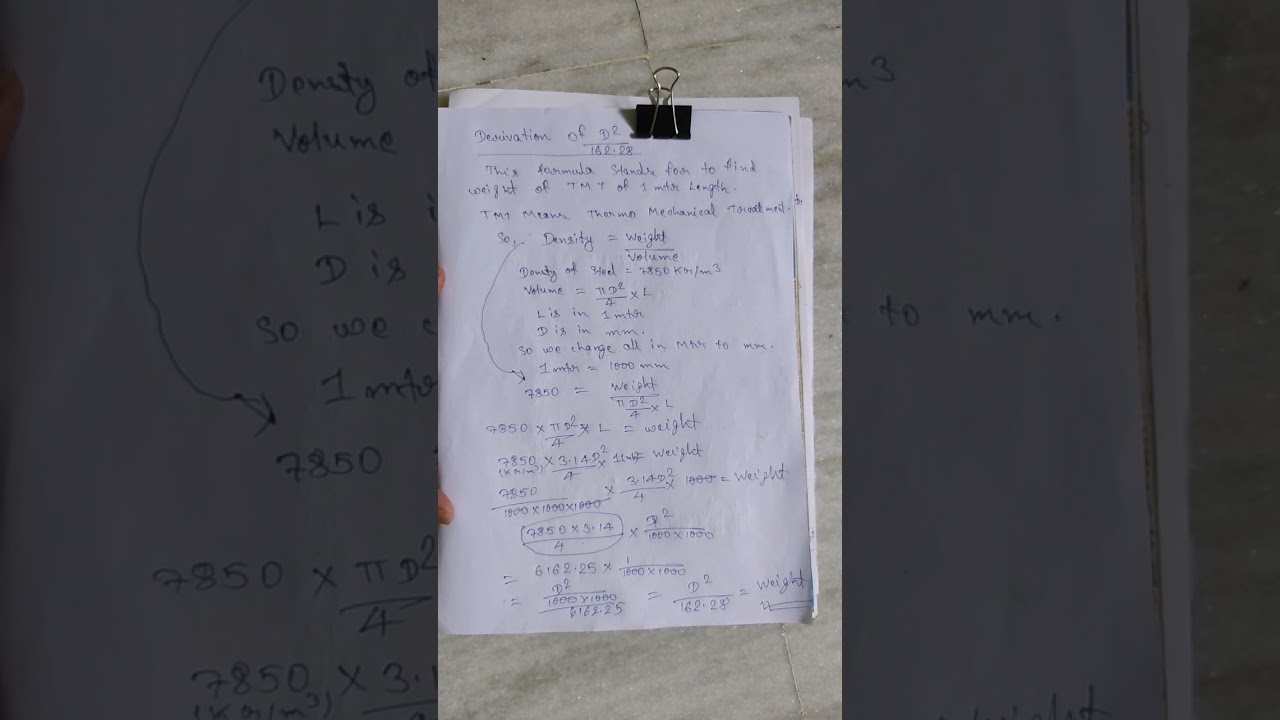 Derivation of D²/162.28
This formula stands for to find
weight of TMT of 1 mtr Length.
TMT Means Thermo Mechanical Treatment.
So, Density = Weight/Volume
Density of Steel = 7850 Kg/m³
Volume = πD²/4 × L
L is in 1 mtr
D is in mm.
So we change all in Mtr to mm.
1 mtr = 1000 mm
7850 = Weight/(πD²/4 × L)
7850 × πD²/4 × L = weight
7850 (Kg/m³) × 3.14D²/4 × 1 mtr = Weight
7850/(1000×1000×1000) × 3.14D²/4 × 1000 = Weight
(7850 × 3.14)/4 × D²/(1000×1000)
= 6162.25 × 1/(1000×1000)
= D²/(1000×1000)/6162.25 = D²/162.28 = Weight